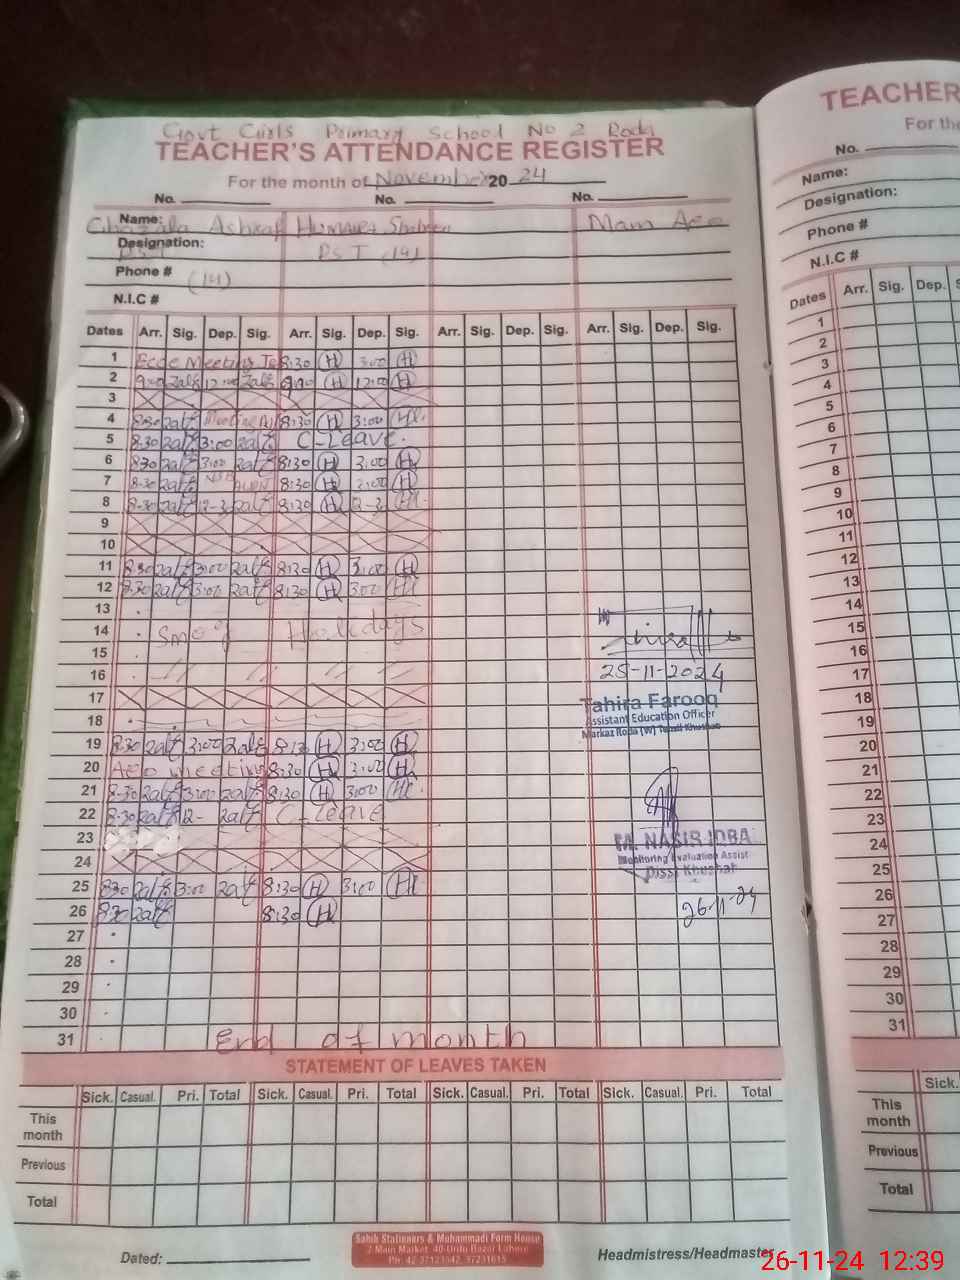 Govt Girls Primary School No 2 Roda
TEACHER'S ATTENDANCE REGISTER
For the month of November 2024
No. No. No.
Name: Ghazala Ashraf Humaira Shaheen Mam Aeo
Designation: PST PST (14)
Phone # (14)
N.I.C #
Dates Arr. Sig. Dep. Sig. Arr. Sig. Dep. Sig. Arr. Sig. Dep. Sig. Arr. Sig. Dep. Sig.
1 Ecce Meeting 8:30 H 3:00 H
2 9:00 Zalf 12:00 Zalf 9:00 H 12:00 H
3
4 8:30 Zalf Meeting 8:30 H 3:00
5 8-30 Zalf 3:00 Zalf C-Leave.
6 8:30 Zalf 3:00 Zalf 8:30 H 3:00 H
7 8-30 Zalf 8:30 H 2:00 H
8 8-30 Zalf 12-3 Zalf 8:30 H 12-3
9
10
11 8:30 Zalf 3:00 Zalf 8:30 H 3:00 H
12 8:30 Zalf 3:00 Zalf 8:30 H 3:00
13
14 Smog Holidays
15
16 // // // //
17
18
19 8-30 Zalf 3:00 Zalf 8:30 H 3:00 H
20 Aeo meeting 8:30 H 3:00 H
21 8-30 Zalf 3:00 Zalf 8:30 H 3:00
22 8-30 Zalf 12- Zalf C-leave
23
24
25 8:30 Zalf 3:00 Zalf 8:30 H 3:00
26 8:30 Zalf 8:30 H
27
28
29
30
31 End of month
25-11-2024
Tahira Farooq
Assistant Education Officer
Markaz Roda (W) Tehsil Khushab
M. NASIR IQBA
Monitoring Evaluation Assist
Khushab
26-11-24
STATEMENT OF LEAVES TAKEN
Sick. Casual. Pri. Total Sick. Casual. Pri. Total Sick. Casual. Pri. Total Sick. Casual. Pri. Total
This month
Previous
Total
Dated:
Sabik Stationers & Muhammadi Form House
2-Main Market, 40-Urdu Bazar Lahore
Ph: 42-37123542, 37231615
Headmistress/Headmaster
TEACHER
For the
No.
Name:
Designation:
Phone #
N.I.C #
Dates Arr. Sig. Dep. S
1
2
3
4
5
6
7
8
9
10
11
12
13
14
15
16
17
18
19
20
21
22
23
24
25
26
27
28
29
30
31
Sick.
This month
Previous
Total
26-11-24 12:39